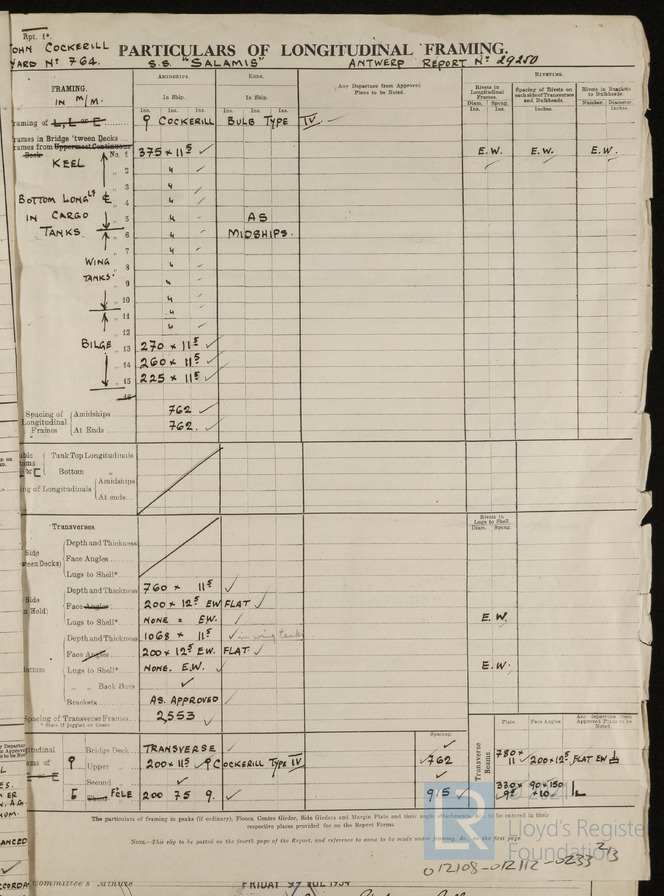 Rpt. 1*.
JOHN COCKERILL
PARTICULARS OF LONGITUDINAL FRAMING.
YARD Nº 764.
S.S. "SALAMIS"
ANTWERP REPORT Nº 29250
FRAMING.
IN M/M.
AMIDSHIPS.
In Ship.
Ins. Ins. Ins.
ENDS.
In Ship.
Ins. Ins. Ins.
Any Departure from Approved Plans to be Noted.
RIVETING.
Rivets in Longitudinal Frames.
Diam. Spcng.
Ins. Ins.
Spacing of Rivets on each side of Transverses and Bulkheads.
Inches.
Rivets in Brackets to Bulkheads.
Number. Diameter.
Inches.
raming of L, L or E COCKERILL BULB TYPE IV
rames in Bridge 'tween Decks
rames from Uppermost Continuous Deck No. 1 375 × 11⁵ ✓ E.W. E.W. E.W.
KEEL
„ 2 „ ✓
„ 3 „ ✓
BOTTOM LONGLS „ 4 „ ✓
IN CARGO „ 5 „ ✓ AS
TANKS. „ 6 „ ✓ MIDSHIPS.
„ 7 „ ✓
WING „ 8 „ ✓
TANKS. „ 9 „ ✓
„ 10 „ ✓
„ 11 „ ✓
„ 12 „ ✓
BILGE „ 13 270 × 11⁵ ✓
„ 14 260 × 11⁵ ✓
„ 15 225 × 11⁵ ✓
16
Spacing of Longitudinal Frames
Amidships 762 ✓
At Ends 762. ✓
Tank Top Longitudinals
Bottom „
ng of Longitudinals
Amidships
At ends
Transverses.
Rivets in Lugs to Shell.
Diam. Spcng.
Side
ween Decks)
Depth and Thickness
Face Angles
Lugs to Shell*
Side
n Hold)
Depth and Thickness 760 × 11⁵ ✓
Face Angles 200 × 12⁵ EW FLAT ✓
Lugs to Shell* NONE EW. ✓ E.W.
ottom
Depth and Thickness 1068 × 11⁵ ✓ in wing tanks
Face Angles 200 × 12⁵ EW. FLAT ✓
Lugs to Shell* NONE. E.W. ✓ E.W.
„ „ Back Bars ✓
Brackets AS APPROVED ✓
Spacing of Transverse Frames. 2553 ✓
* State if joggled or liners.
Spacing.
Transverse Beams
Plate
Face Angles
Any departure from Approved Plans to be Noted.
Bridge Deck TRANSVERSE ✓ ✓
Upper „ 200 × 11⁵ COCKERILL TYPE IV ✓ 762
780 × 11 ✓ 200 × 12⁵ FLAT EW
Second „ ✓ ✓
Third FCLE 200 75 9. ✓ 915 ✓
330 × 9⁵ 90 × 150 × 10
The particulars of framing in peaks (if ordinary), Floors, Centre Girder, Side Girders and Margin Plate and their angle attachments, &c., to be entered in their
respective places provided for on the Report Forms.
NOTE.—This slip to be pasted on the fourth page of the Report, and reference to same to be made under framing, &c., on the first page.
LR
© 2021
Lloyd's Register
Foundation
012108-012112-0233 2/3
Committee's Minute